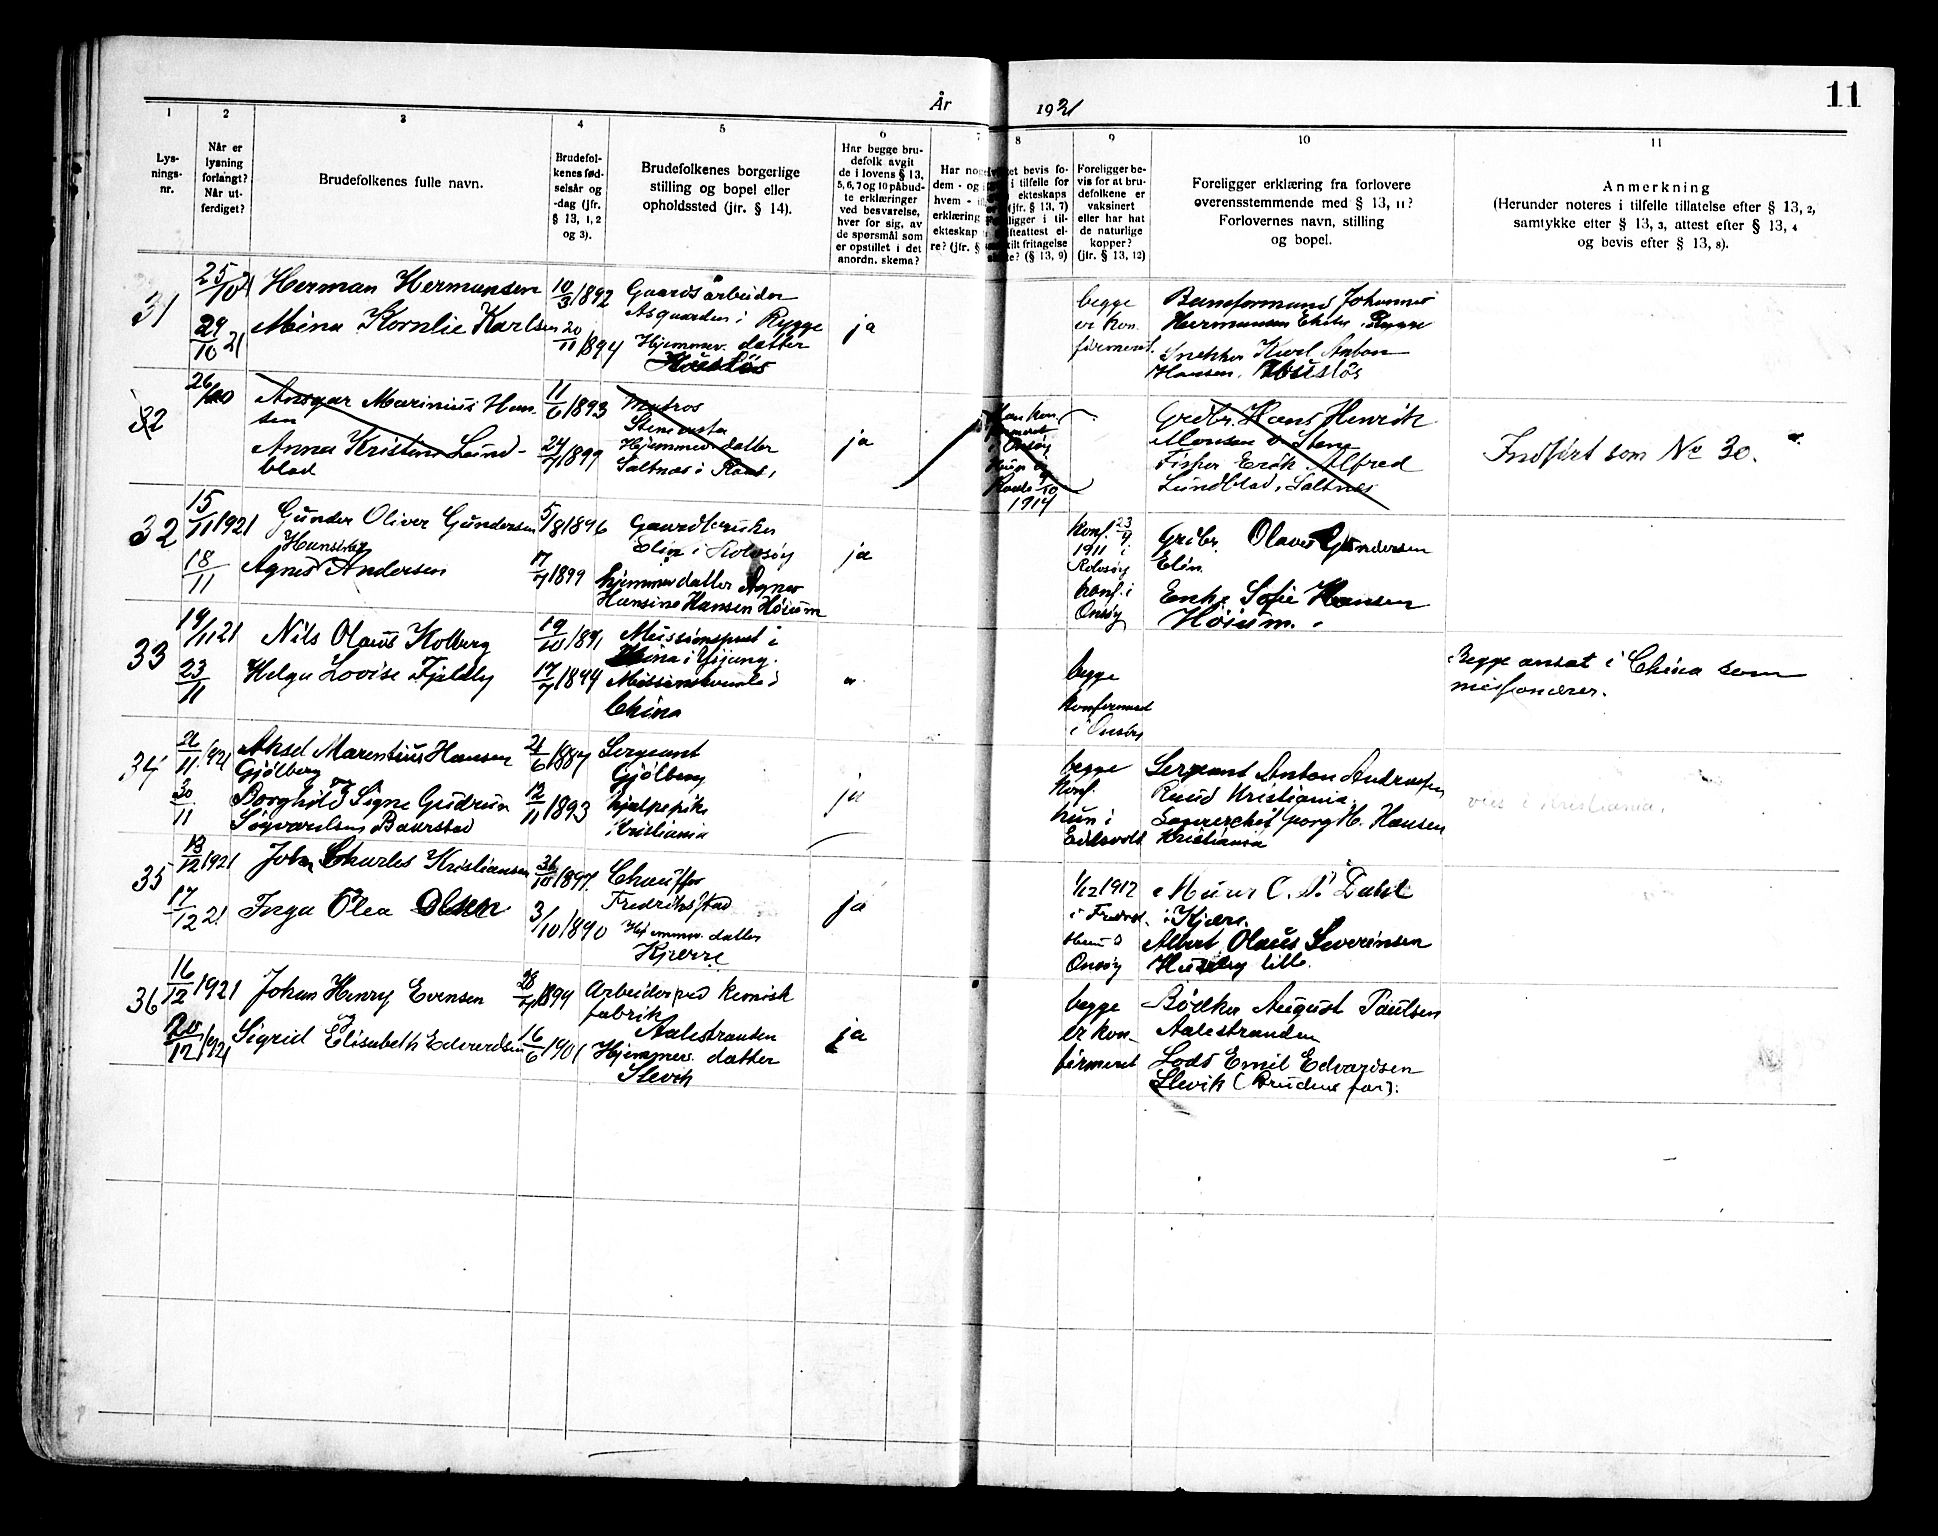 År 1921
11
1 2 3 4 5 6 7 8 9 10 11
Lys-
nings-
nr.
Når er
lysning
forlangt?
Når ut-
ferdiget?
Brudefolkenes fulle navn.
Brudefol-
kenes fød-
selsår og
-dag (jfr.
§ 13, 1, 2
og 3).
Brudefolkenes borgerlige
stilling og bopel eller
opholdssted (jfr. § 14).
Har begge bru-
defolk avgit
de i lovens § 13,
5, 6, 7 og 10 påbud-
te erklæringer
ved besvarelse,
hver for sig, av
de spørsmål som
er opstillet i det
anordn. skema?
Har nog
dem - og i
hvem - ti
erklæring
ekteskap
re? (jfr. §
et bevis fo-
i tilfelle for
ekteskaps
(jfr. § 13, 7)
ligger i til-
ifteattest el-
tilt fritagelse
? (§ 13, 9)
Foreligger be-
vis for at bru-
defolkene er
vaksinert
eller har hat
de naturlige
kopper?
(jfr. § 13, 12)
Foreligger erklæring fra forlovere
overensstemmende med § 13, 11?
Forlovernes navn, stilling
og bopel.
Anmerkning
(Herunder noteres i tilfelle tillatelse efter § 13, 2,
samtykke efter § 13, 3, attest efter § 13, 4
og bevis efter § 13, 8).
31
25/10 21
29/10 21
Herman Hermansen
Mina Kornlie Karlsen
10/3 1892
20/11 1894
Gaardsarbeider
i Rygge
Hjemmev. datter
ja
begge
er kon-
firmeret.
Johannes
Hermansen
Snekker Karl Anton
Hansen.
32
26/10
Ansgar Marinius Han-
sen
Anna Kristine Lund-
blad
11/6 1893
24/7 1899
Matros
Hjemmev. datter
Saltnes i Raade,
ja
Han kon-
firmeret
Onsøy
Raade
1914
Grdbr. Hans Henrik
Monsen
Fisker Erik Alfred
Lundblad, Saltnes
Indført som No 30.
32
15/11 1921
18/11
Gunder Oliver Gundersen
Agnes Andersen
5/8 1896
17/7 1899
Gaardbruker
Elin i Rolvsøy
hjemmev datter Agnes
Hansine Hansen Høium
ja
Konf. 23/4
1911 i
Rolvsøy
konf. i
Onsøy
Grdbr. Olaves Gundersen
Elin.
Enke Sofie Hansen
Høium.
33
19/11 21
23/11
Nils Olaus Kolberg
Helga Lovise Fjeldby
19/10 1891
17/7 1894
Missionsprest i
Kina i
Missionskvinde i
China
"
begge
konfirmeret
i Onsøy
Begge ansat i China som
misjonærer.
34
26/11 1921
30/11
Aksel Marentius Hansen
Gjölberg og
Borghild Signe Gudrun
21/6 1887
12/11 1893
Sergeant
Gjölberg
hjelpepike
Kristiania
ja
begge
Konf.
hun i
Eidsvold
Sergeant Anton Andreasen
Ruud Kristiania.
Georg H. Hansen
Kristiania
vies i Kristiania.
35
13/12 1921
17/12 21
John Charles Kristiansen
Inga Olea Olsen
1897.
3/10 1890
Chauffør
Fredrikstad
Hjemmev. datter
Kjærre
ja
1/12 1912
i Fredrst.
Hun i
Onsøy
Murer C. P. Dahl
i Kjære.
Albert Olaus Severinsen
Huseby lille.
36
16/12 1921
20/12 1921
Johan Henry Evensen
og
Sigrid Elisabeth Edvardsen
28/7 1899
16/6 1901
Arbeider ved kemisk
fabrik
Aalestranden
Hjemmev. datter
Slevik
ja
begge
er kon-
firmeret
Bødker August Paulsen
Aalestranden
Lods Emil Edvardsen
Slevik (Brudens far).